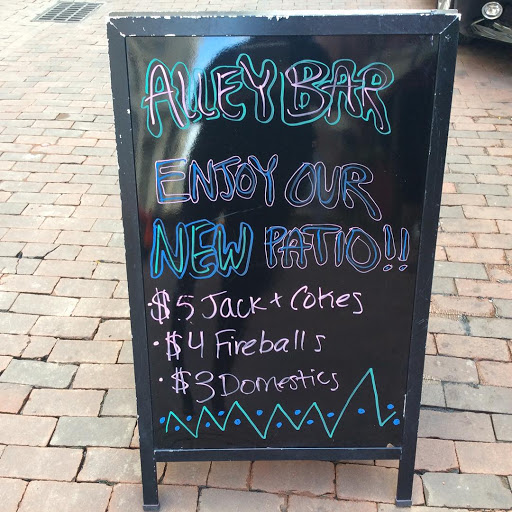 ALLEY BAR
ENJOY OUR
NEW PATIO!!
·$5 Jack + Cokes
·$4 Fireballs
·$3 Domestics